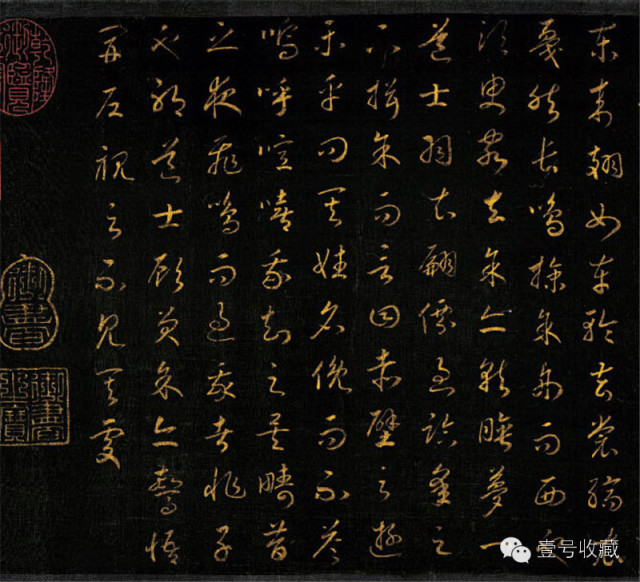 東来翅如車輪玄裳縞衣
戛然長鳴掠予舟而西也
須臾客去予亦就睡夢一
道士羽衣翩僊過臨皋之
下揖予而言曰赤壁之遊
樂乎問其姓名俛而不答
嗚呼噫嘻我知之矣疇昔
之夜飛鳴而過我者非子
也邪道士顧笑予亦驚悟
開户視之不見其處
御書
御書之寶
壹号收藏